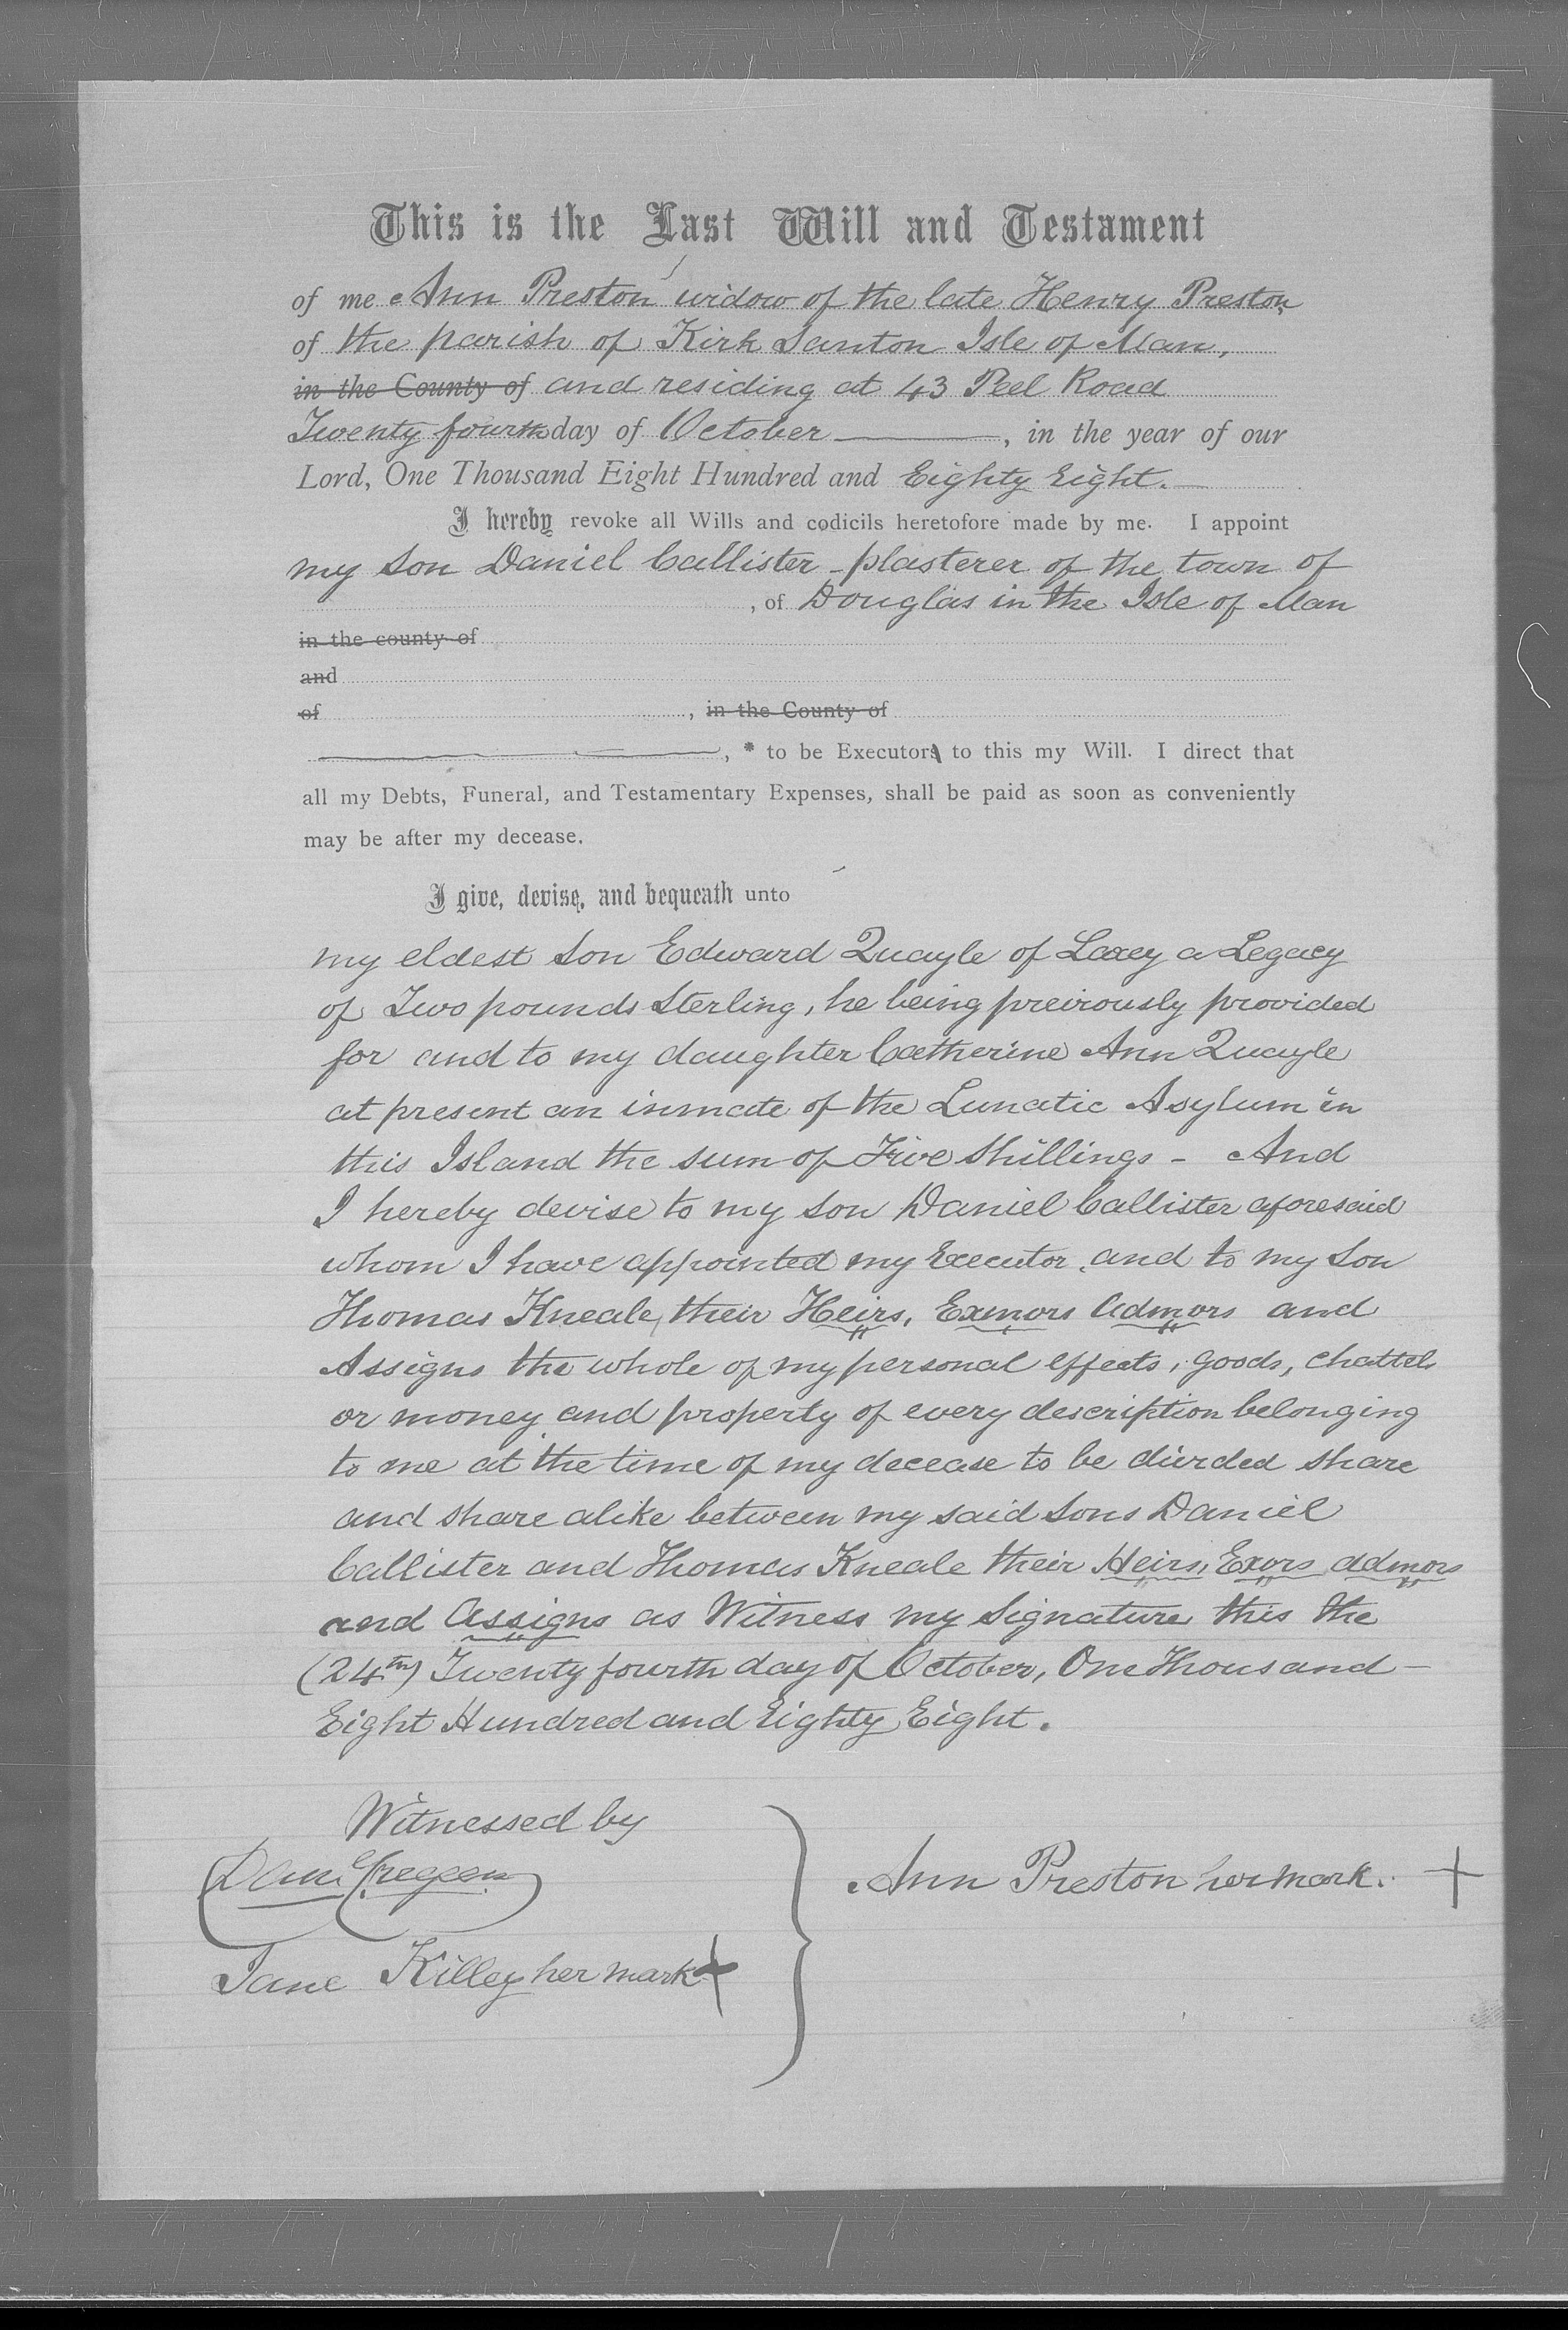 This is the Last Will and Testament
of me Ann Preston widow of the late Henry Preston
of the parish of Kirk Santon Isle of Man,
in the County of and residing at 43 Peel Road
Twenty fourth day of October ———, in the year of our
Lord, One Thousand Eight Hundred and Eighty Eight.—
I hereby revoke all Wills and codicils heretofore made by me. I appoint
my son Daniel Callister - plasterer of the town of
, of Douglas in the Isle of Man
in the county of
and
of , in the County of
———, * to be Executors to this my Will. I direct that
all my Debts, Funeral, and Testamentary Expenses, shall be paid as soon as conveniently
may be after my decease.
I give, devise, and bequeath unto
my eldest son Edward Quayle of Laxey a Legacy
of Two pounds Sterling, he being preivously provided
for and to my daughter Catherine Ann Quayle
at present an inmate of the Lunatic Asylum in
this Island the sum of Five Shillings - And
I hereby devise to my son Daniel Callister aforesaid
whom I have appointed my Executor, and to my Son
Thomas Kneale, their Heirs, Exmors Admors and
Assigns the whole of my personal effects, goods, chattels
or money and property of every description belonging
to me at the time of my decease to be divided share
and share alike between my said Sons Daniel
Callister and Thomas Kneale their Heirs, Exors admors
and Assigns as Witness my Signature this the
(24th) Twenty fourth day of October, One Thousand —
Eight Hundred and Eighty Eight.
Witnessed by
Danl Cregeen
Ann Preston her mark. +
Jane Killey her mark +